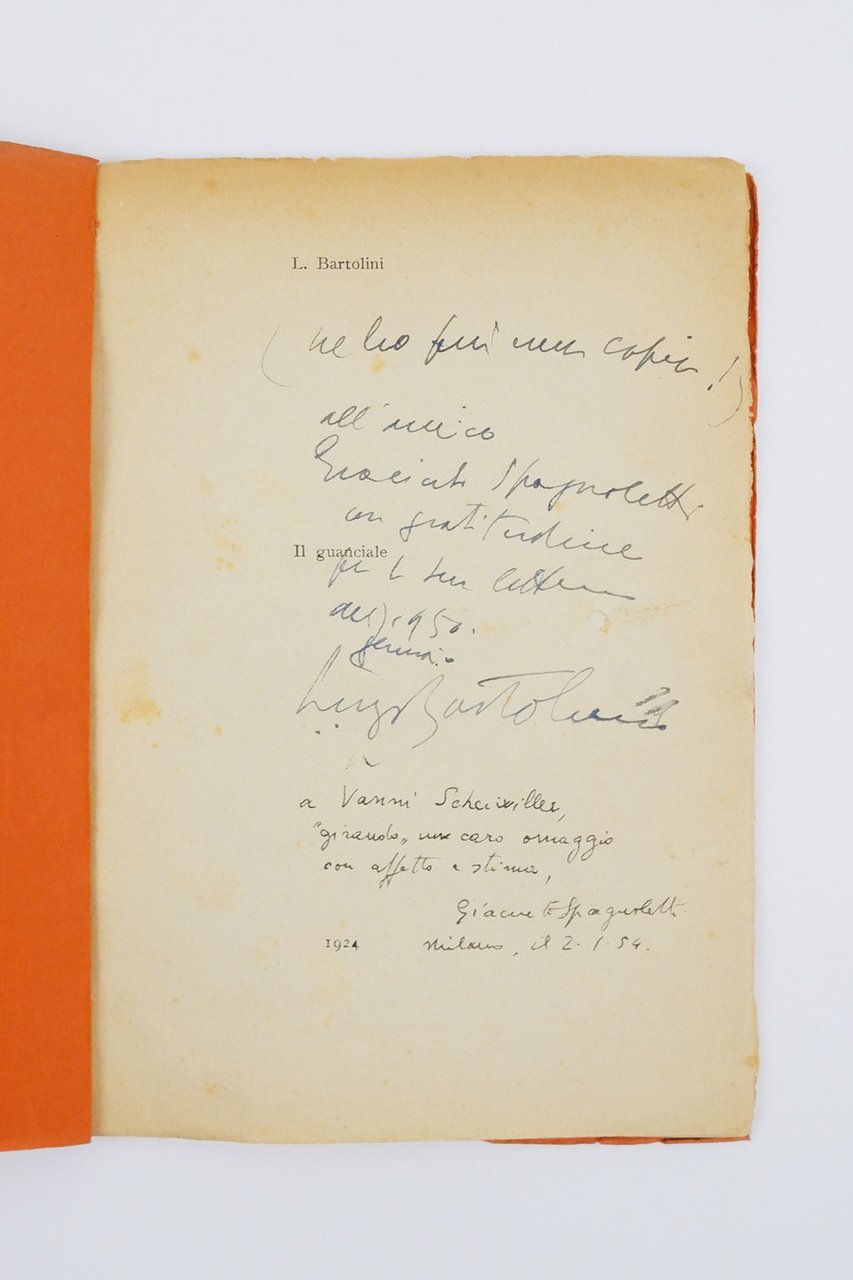 L. Bartolini
(ne ho più una copia!)
all'amico
Giacinto Spagnoletti
con gratitudine
Il guanciale
per la sua lettera
del 1950.
gennaio
Luigi Bartolini
a Vanni Scheiwiller,
"girando„ un caro omaggio
con affetto e stima,
Giacinto Spagnoletti
1924 Milano, il 2. 1. 54.